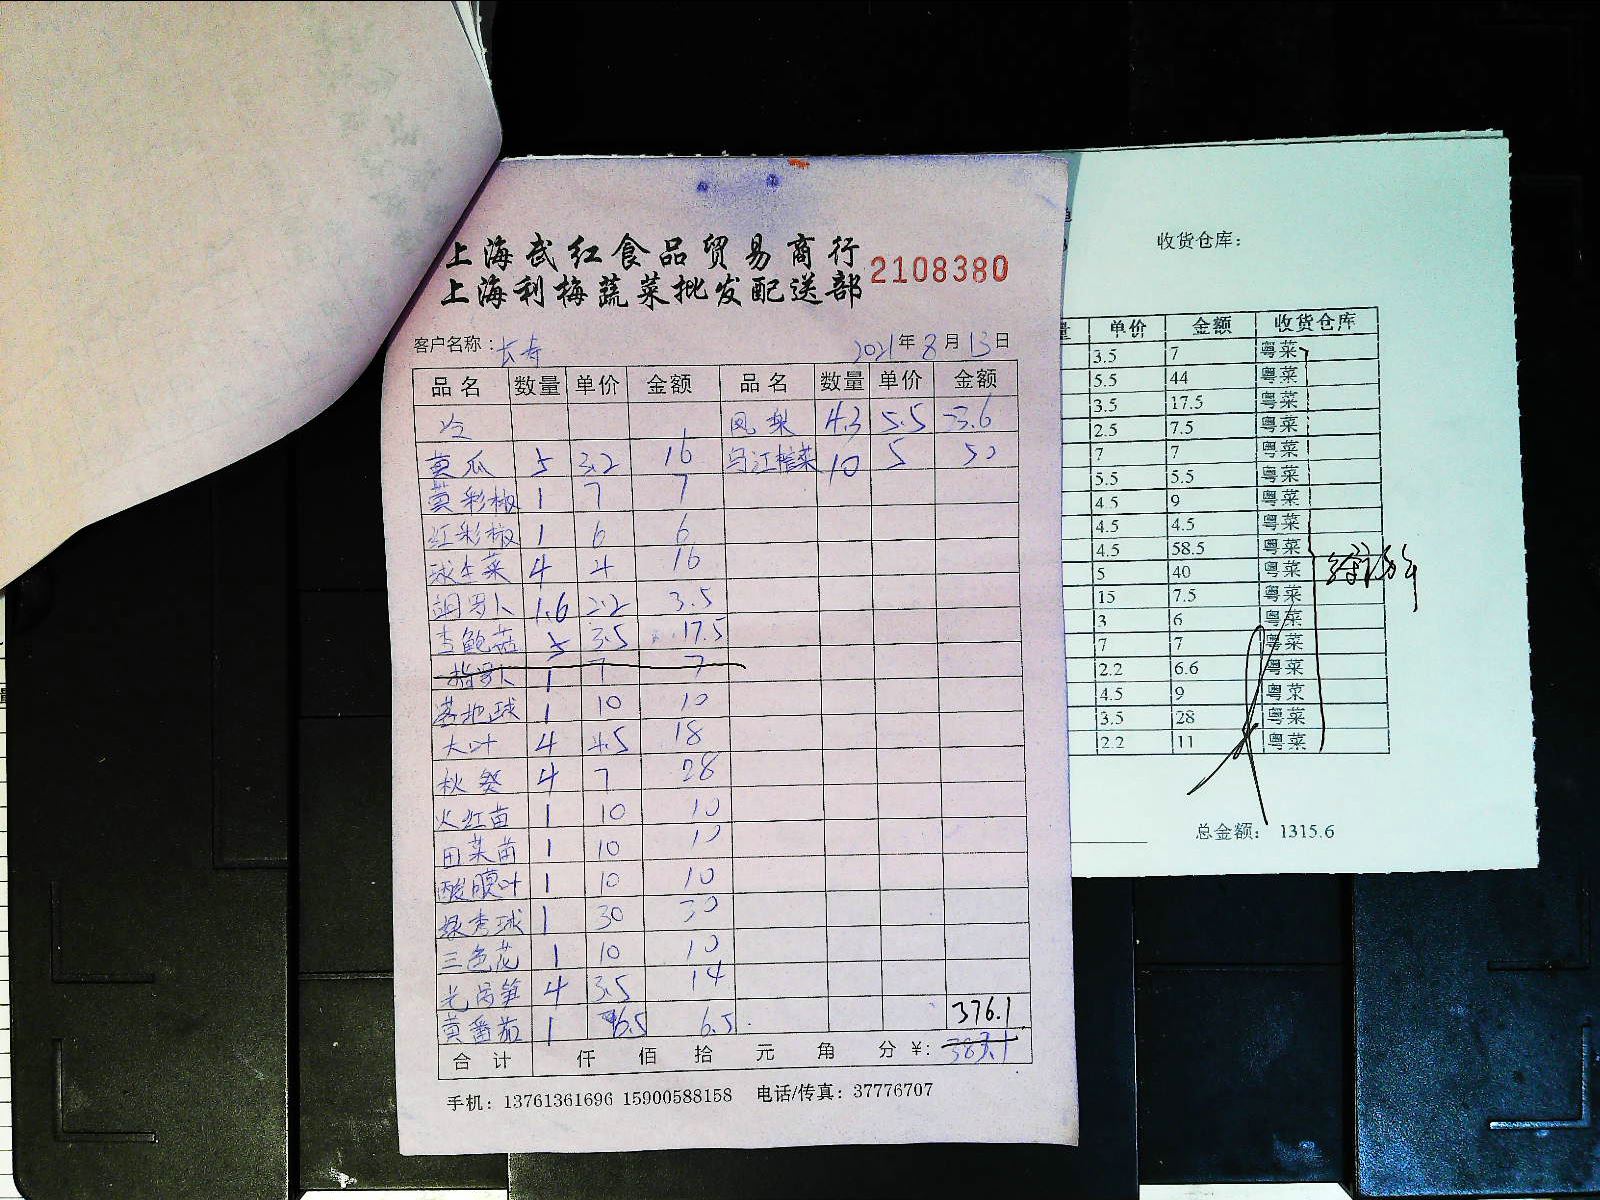 上海武红食品贸易商行
上海利梅蔬菜批发配送部
2108380
客户名称：长寿 2021年8月13日
品名 数量 单价 金额 品名 数量 单价 金额
冷 凤梨 4.3 5.5 23.6
黄瓜 5 3.2 16 乌江榨菜 10 5 50
黄彩椒 1 7 7
红彩椒 1 6 6
球生菜 4 4 16
胡罗卜 1.6 2.2 3.5
杏鲍菇 5 3.5 17.5
指罗卜 1 7 7
苦地球 1 10 10
大叶 4 4.5 18
秋葵 4 7 28
火红苗 1 10 10
田菜苗 1 10 10
酸膜叶 1 10 10
绿秀球 1 30 30
三色花 1 10 10
光莴笋 4 3.5 14
黄番茄 1 6.5 6.5
376.1
合计 仟 佰 拾 元 角 分 ￥: 383.1
手机：13761361696 15900588158 电话/传真：37776707
收货仓库：
量 单价 金额 收货仓库
3.5 7 粤菜
5.5 44 粤菜
3.5 17.5 粤菜
2.5 7.5 粤菜
7 7 粤菜
5.5 5.5 粤菜
4.5 9 粤菜
4.5 4.5 粤菜
4.5 58.5 粤菜
5 40 粤菜
15 7.5 粤菜
3 6 粤菜
7 7 粤菜
2.2 6.6 粤菜
4.5 9 粤菜
3.5 28 粤菜
2.2 11 粤菜
总金额： 1315.6